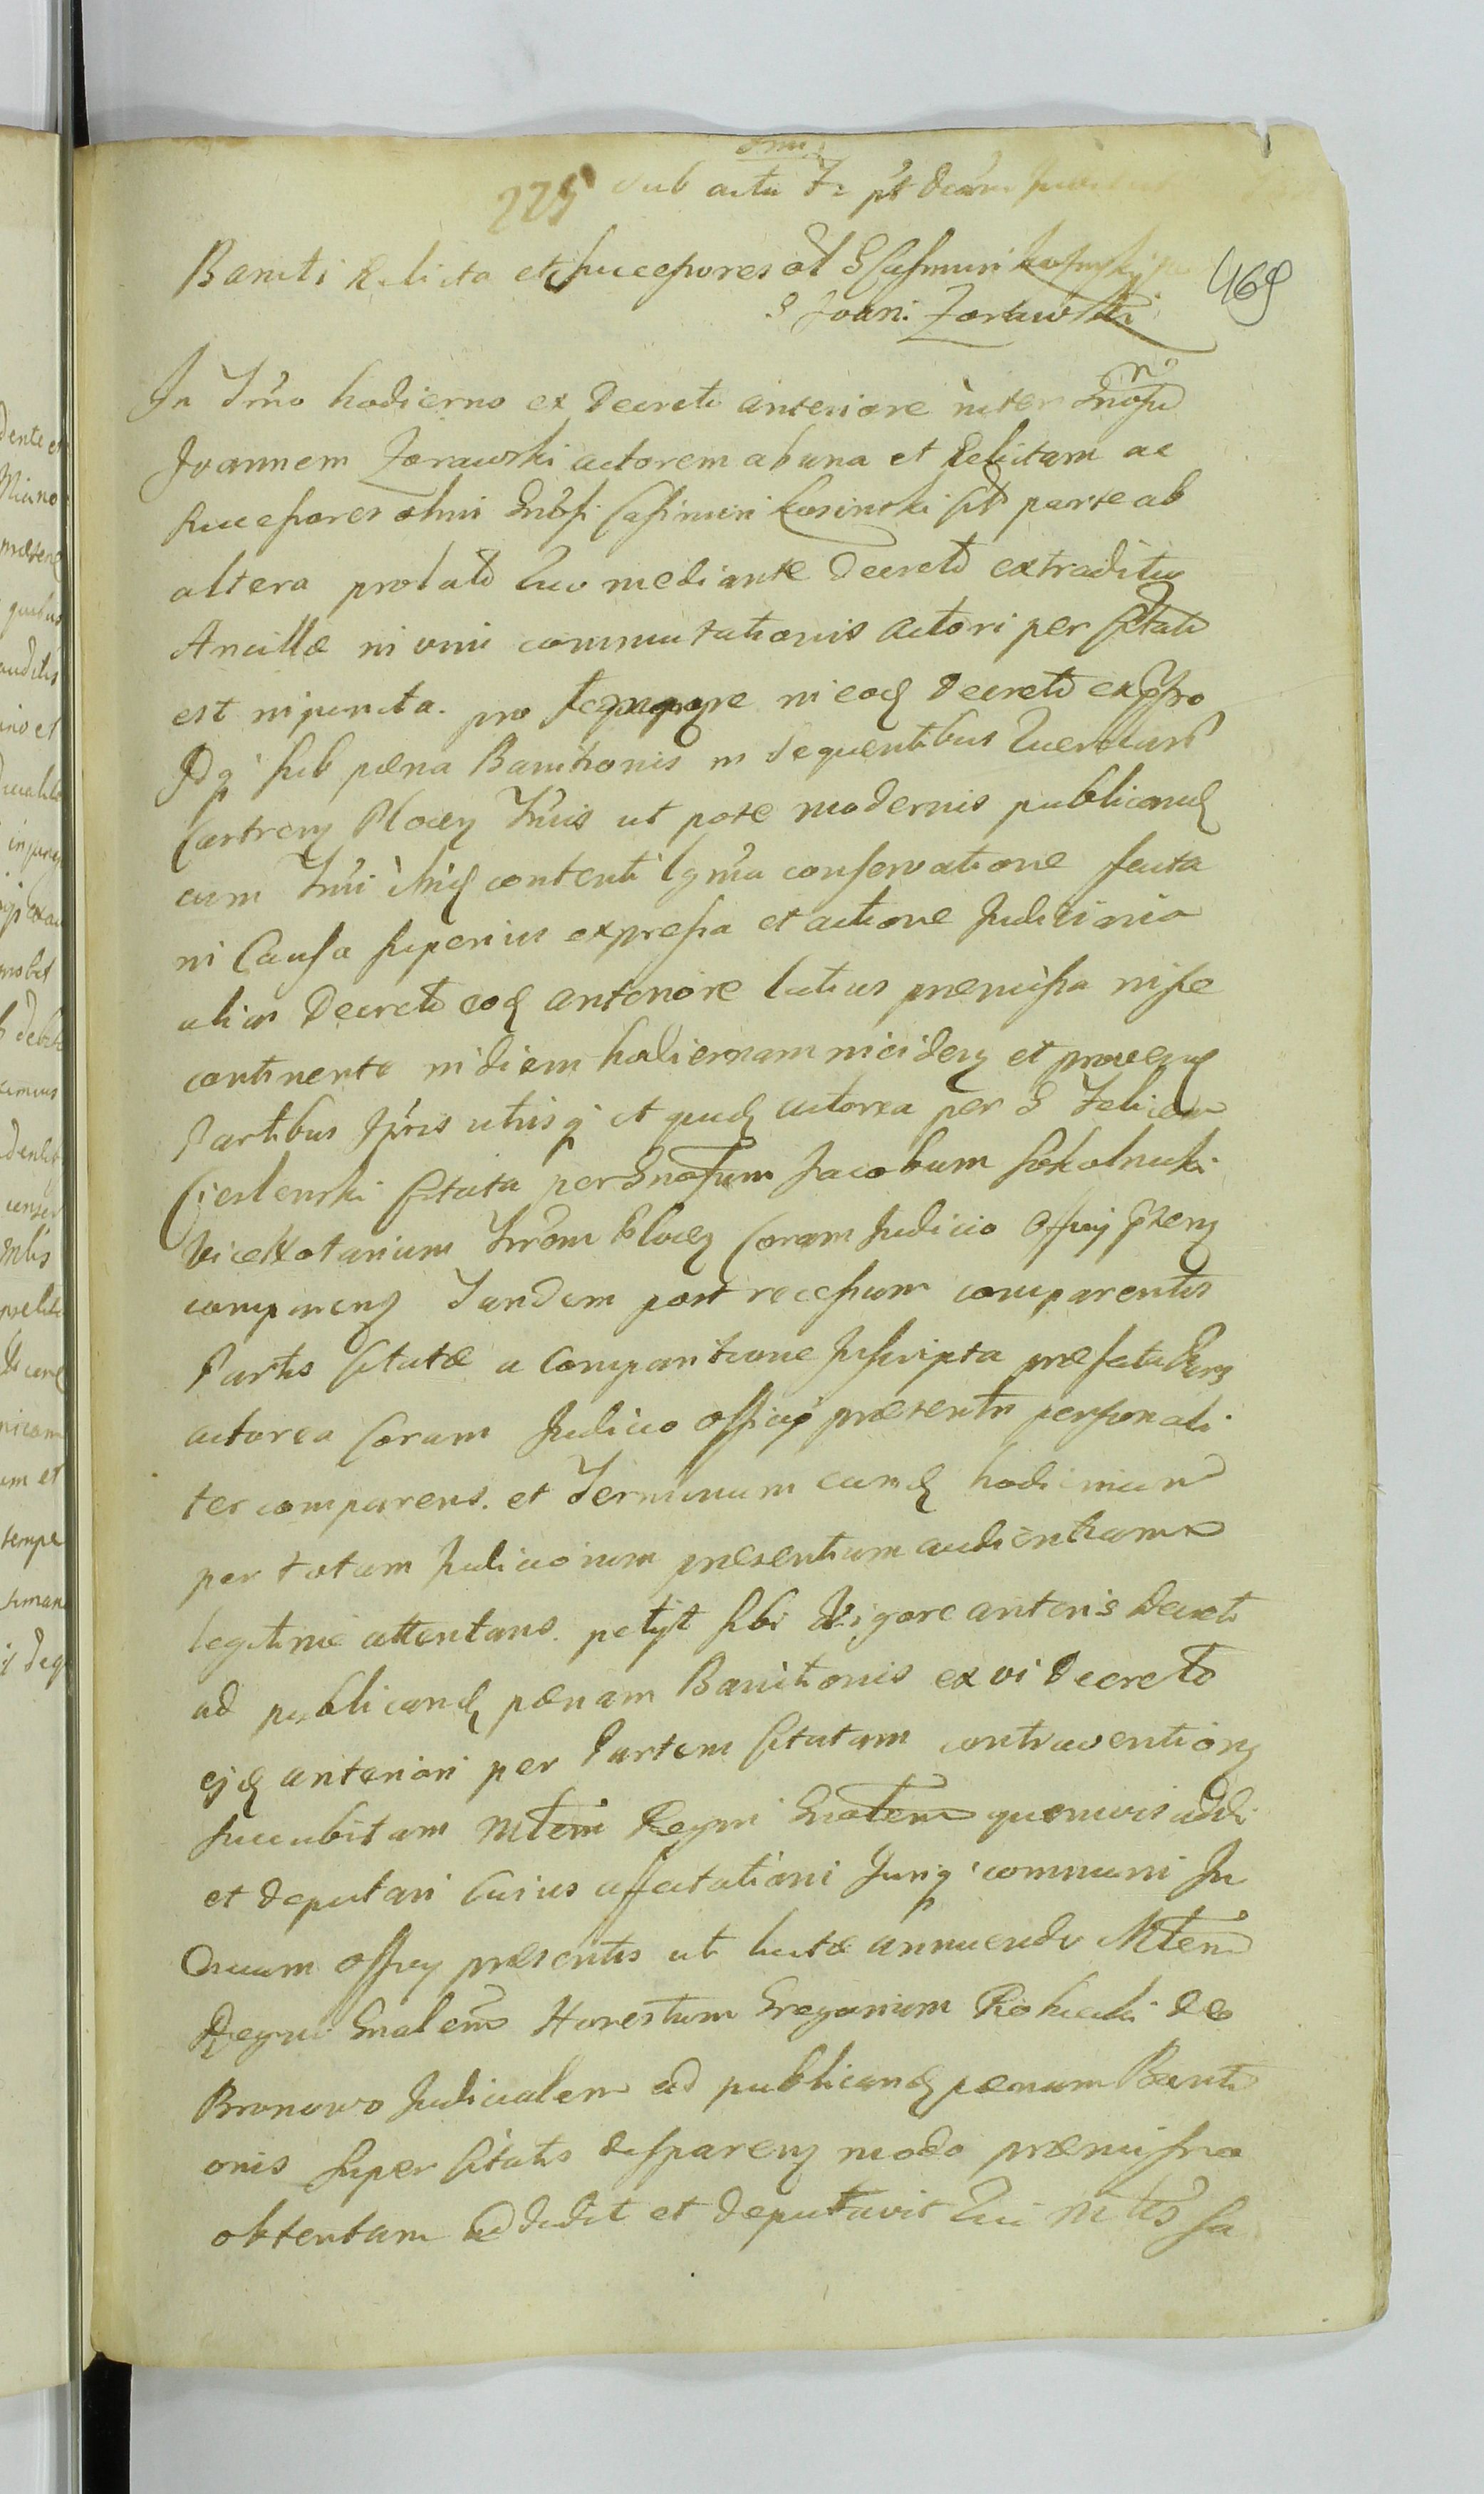 225 Sub actu
Baniti Relicta et Successores ol G Casimiri Kosinskij
469
G Joani Zorawski
In Trno hodierno ex Decreto anteriore inter Gnosu
Joannem Zorawski actorem ab una et Relictam ac
Successores olim Gnosi Casimiri Kosinski citt parte ab
altera prolato Quo mediante Decreto extraditio
Ancillæ in vim commutationis Actori per Citatos
est injuncta. pro tempore in eod Decreto expsso
Idq sub pæna Banitionis in sequentibus Querelarum
Castren Plocen Trnis ut pote modernis publicand
cum Trni contenti conservatione facta
in Causa superius expressa et actione Judiciaria
alias Decreto eod anteriore latius præmissa in se
continente in diem hodiernam inciden et proven
Partibus Ipsis utrisq et quid actorea per G Felicem
Cieslenski Citata per Gnosum Jacobum Sokolnicki
ViceNotarium Trrem Plocen Coram Judicio Officij pnten
comparen Tandem post recessum comparentis
Partis Citatæ a Comparitione suscripta præfata Pars
actorea Coram Judicio Officij præsentis personali
ter comparens. et Terminum eund hodiernum
per totam Judiciorum præsentium audientiam
legitime attentans. petijt sibi Vigore anteris Decreti
ad publicand pænam Banitionis ex vi Decreto
ejd anteriori per Partem Citatam contravention
succubitam Mtem Regni Gnalem quemvis addi
et deputari Cuius affectationi Juriq communi Ju
dicium Officij præsentis uti annuendo Mtem
Regni Gnalem Honestum Gregorium de
Bronowo Judicialem ad publicand pænam Baniti
onis super Citatis disparen modo præmisso
obtentam addidit et deputavit Qui Mtis